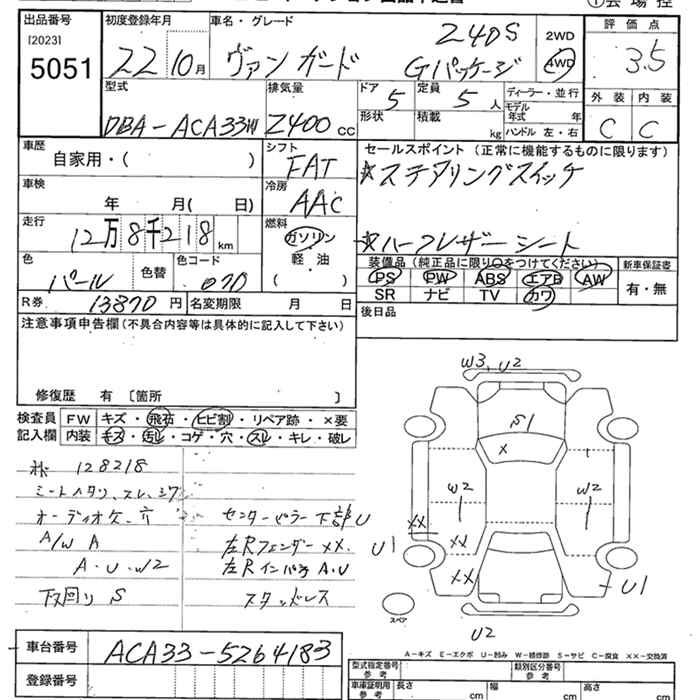 出品番号 初度登録年月 車名・グレード 評価点
[2023] 5051 22 10月 ヴァンガード 240S Gパッケージ 2WD 4WD 3.5
外装 内装
C C
型式 排気量 ドア 定員 ディーラー・並行
DBA-ACA33W 2400cc 5 5人 モデル年式 年
形状 積載 kg ハンドル 左・右
車歴 シフト セールスポイント (正常に機能するものに限ります)
自家用・( ) FAT ☆ステアリングスイッチ
車検 冷房
年 月( 日) AAC
走行 燃料
12万8千218km ガソリン ☆ハーフレザーシート
軽・油
( )
色 色替 色コード 装備品(純正品に限り○をつけてください) 新車保証書
パール 070 PS PW ABS エアB AW 有・無
R券 13870円 名変期限 月 日 SR ナビ TV カワ
注意事項申告欄(不具合内容等は具体的に記入して下さい) 後日品
修復歴 有 〔箇所 〕
検査員 FW キズ・飛石・ヒビ割・リペア跡・×要
記入欄 内装 キズ・汚レ・コゲ・穴・スレ・キレ・破レ
128218
オーディオ センターピラー下部U
A/W A 左Rフェンダーxx.
A・U・W2 左Rインパネ A・U
下回り S スタッドレス
W3, U2
S1
x
W2 W2
xx
U1 xx
xx U1
スペア
U2
A-キズ E-エクボ U-凹み W-補修跡 S-サビ C-腐食 ××-交換済
車台番号 ACA33-5264183
登録番号
型式指定番号 参考 類別区分番号 参考
車庫証明用 参考 長さ cm 幅 cm 高さ cm